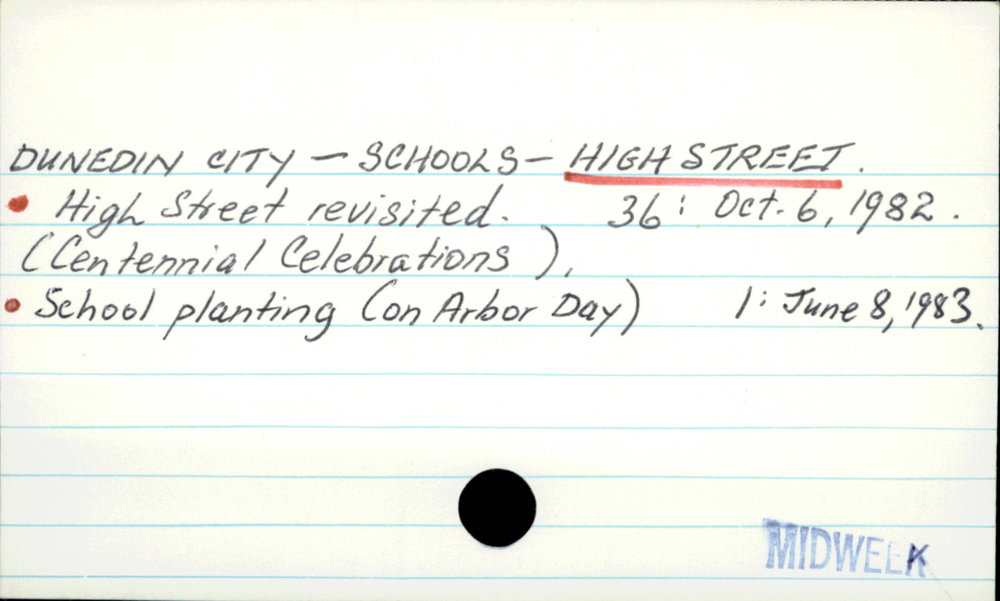 DUNEDIN CITY - SCHOOLS - HIGH STREET.
• High Street revisited. 36: Oct. 6, 1982.
(Centennial Celebrations),
• School planting (on Arbor Day) 1: June 8, 1983.
MIDWEEK